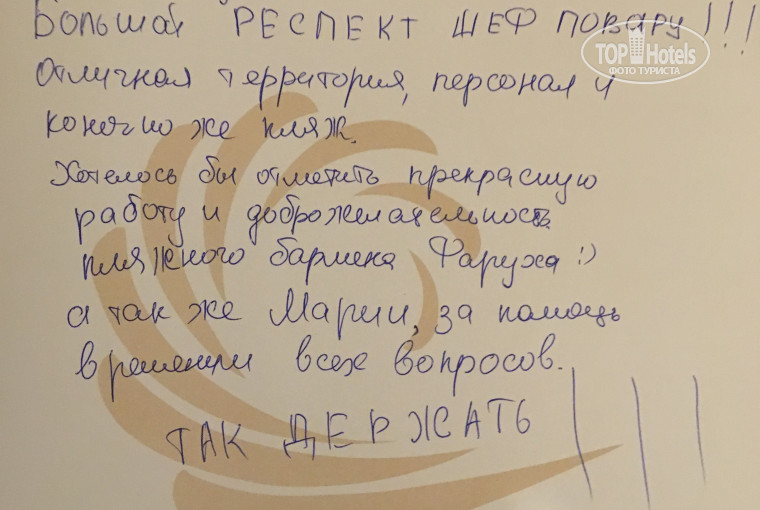 Большой РЕСПЕКТ ШЕФ ПОВАРУ!!!
TOP Hotels
ФОТО ТУРИСТА
Отличная территория, персонал и
конечно же пляж.
Хотелось бы отметить прекрасную
работу и доброжелательность
пляжного бармена Фаруха :)
а так же Марии, за помощь
в решении всех вопросов.
ТАК ДЕРЖАТЬ!!!